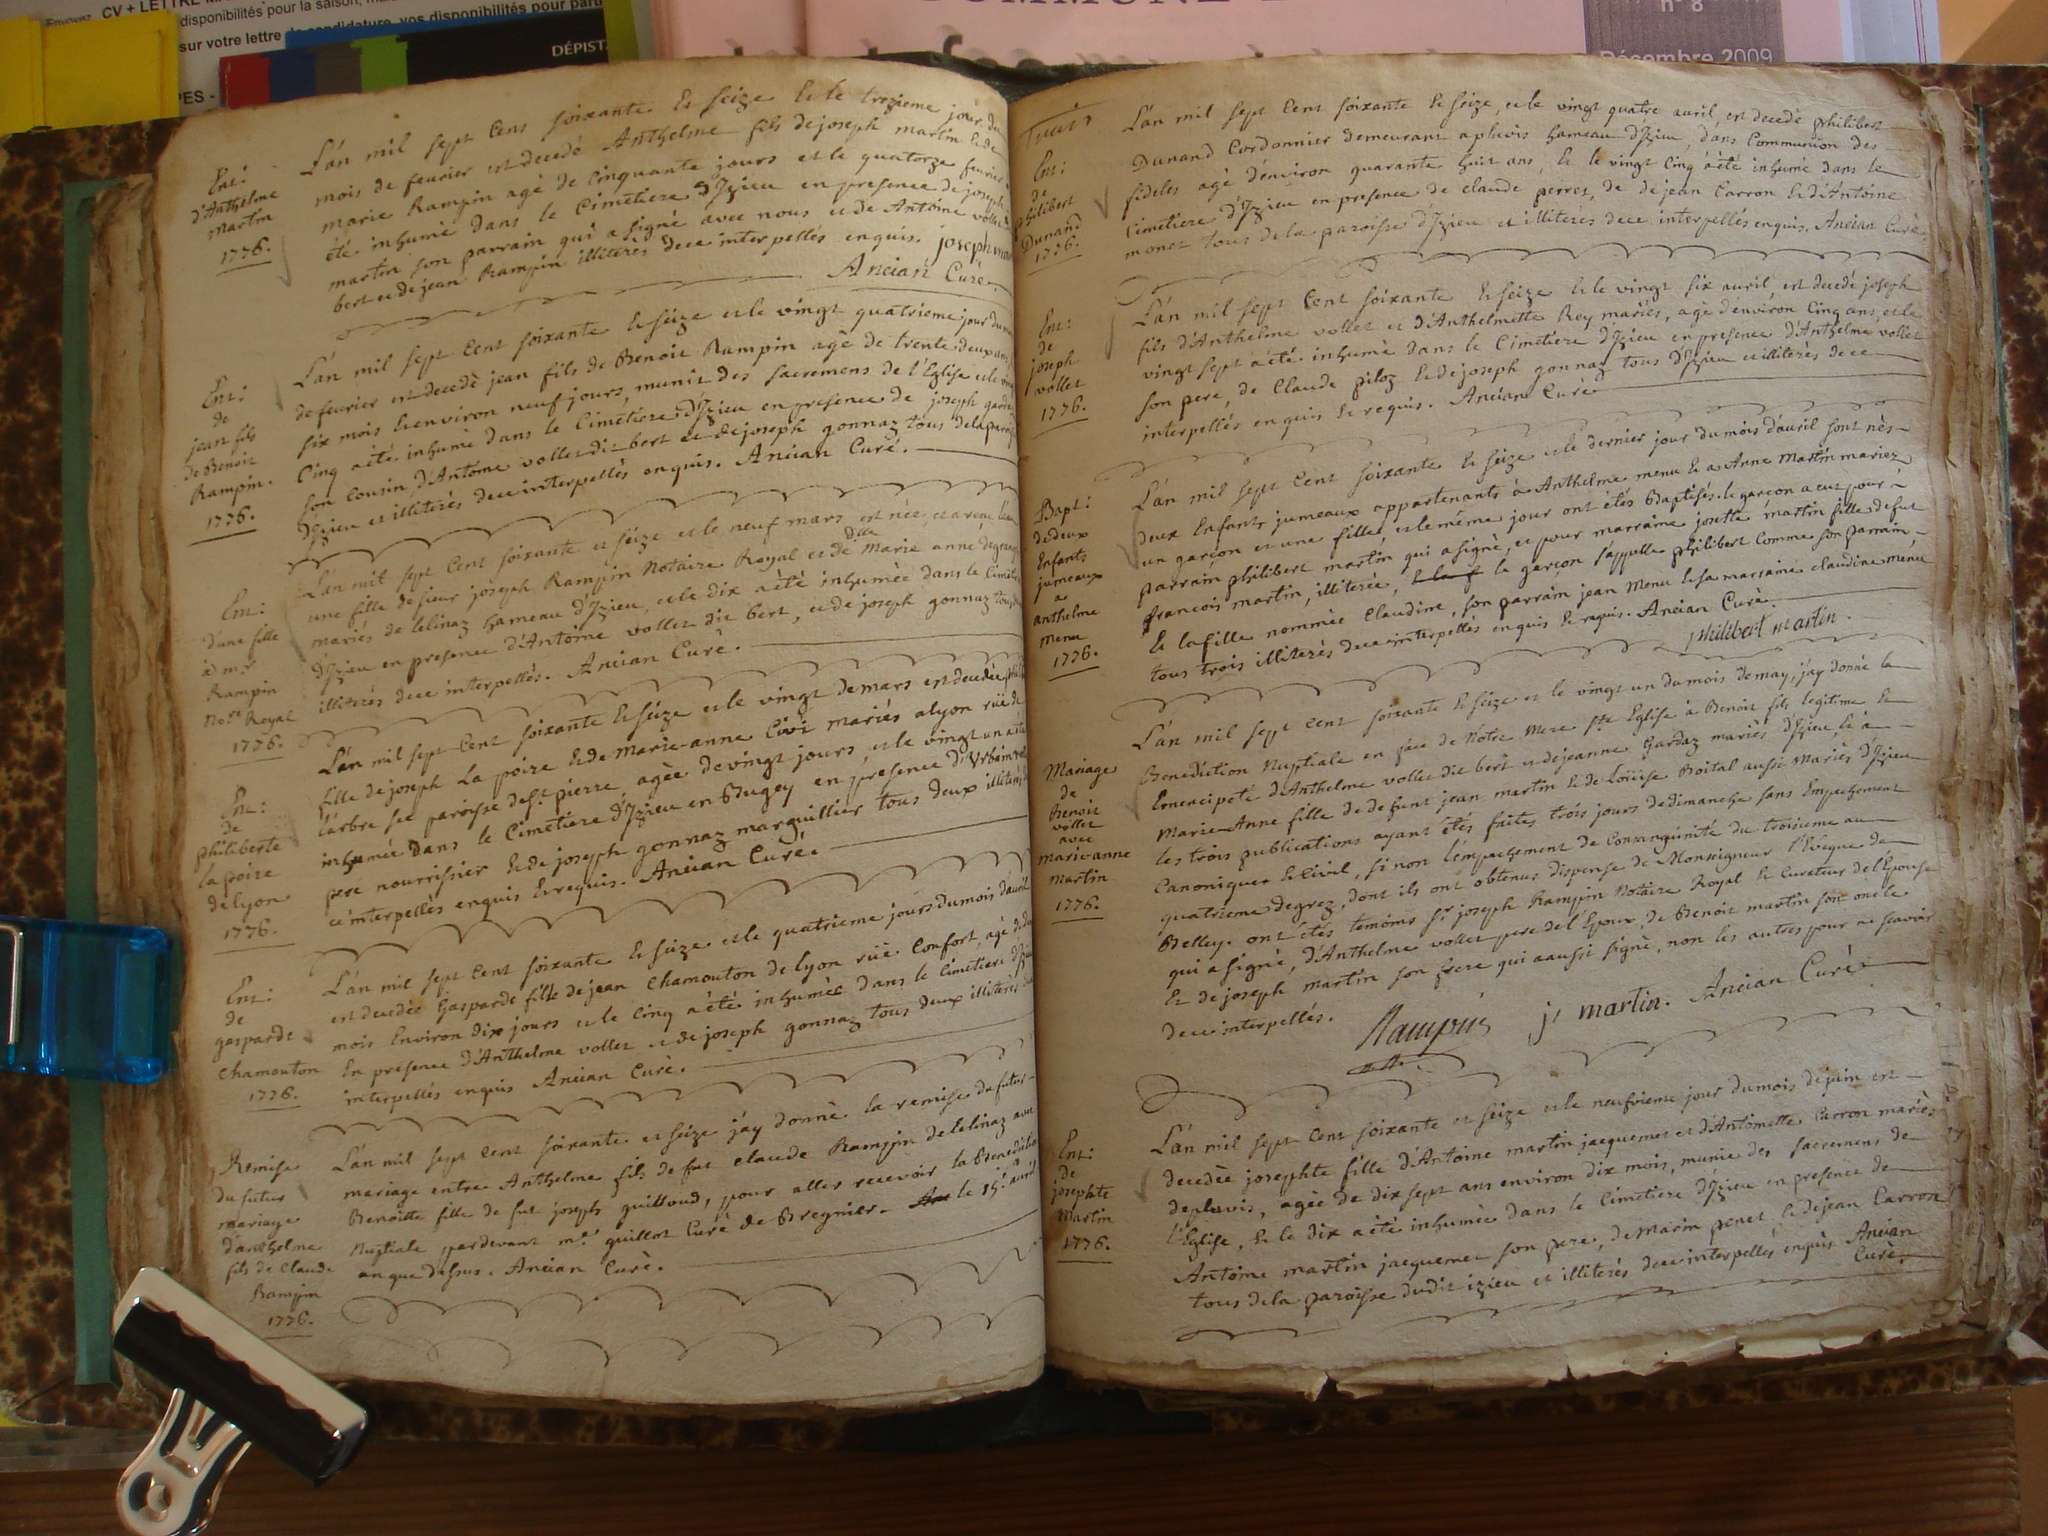 CV + LETTRE
disponibilités pour la saison,
sur votre lettre de candidature, vos disponibilités pour
DÉPIST
PES -
n° 8
Décembre 2009
Ent:
d'Anthelme
martin
1776.
L'an mil sept Cent soixante & seize & le trezieme jour du
mois de feurier est decedé Anthelme fils de joseph martin & de
marie Rampin agé de Cinquante jours et le quatorze feurier a
été inhumé dans le Cimetiere d'Izieu en presence de joseph
martin son parrain qui a signé avec nous et de Antoine vollet
bert et de jean Rampin illiterés de ce interpellés enquis. joseph mar
Ancian Curé.
Ent:
de
jean fils
de Benoit
Rampin.
1776.
L'an mil sept Cent soixante & seize et le vingt quatrieme jour du mois
de feurier est decedé jean fils de Benoit Rampin agé de trente deux ans
six mois & environ neuf jours, munit des sacremens de l'Eglise et le vingt
Cinq a été inhumé dans le Cimetiere d'Izieu en presence de joseph gardaz
son Cousin, d'Antoine vollet dit bert et de joseph gonnaz tous de la paroisse
d'Izieu et illiterés de ce interpellés enquis. Ancian Curé.
Ent:
d'une fille
à mr
Rampin
Nore Royal
1776.
L'an mil sept Cent soixante et seize et le neuf mars est née, et
une fille de sieur joseph Rampin Notaire Royal et de dlle Marie anne
mariés de lelinaz hameau d'Izieu, et le dix a été inhumée dans le Cimetiere
d'Izieu en presence d'Antoine vollet dit bert, et de joseph gonnaz tous
illiterés de ce interpellés. Ancian Curé.
Ent:
de
philiberte
la poire
de lyon
1776.
L'an mil sept Cent soixante & seize et le vingt de mars est decedée
fille de joseph La poire & de Marie-anne Civi mariés a lyon rüe de
l'arbre sec paroisse de St pierre, agée de vingt jours, et le vingt un a été
inhumée dans le Cimetiere d'Izieu en Bugey en presence d'Urbain
pere nourrissier & de joseph gonnaz marguillier tous deux illiterés de
ce interpellés enquis & requis. Ancian Curé.
Ent:
de
gasparde
Chamouton
1776.
L'an mil sept Cent soixante & seize et le quatrieme jours du mois d'auril
est decedée Gasparde fille de jean Chamouton de lyon rüe Confort, agé de
mois Environ dix jours et le Cinq a été inhumée dans le Cimetiere d'Izieu
En presence d'Anthelme vollet et de joseph gonnaz tous deux illiterés de ce
interpellés enquis Ancian Curé.
Remise
du futur
mariage
d'anthelme
fils de Claude
Rampin
1776.
L'an mil sept Cent soixante et seize j'ay donné la remise du futur
mariage entre Anthelme fils de fut Claude Rampin de lelinaz avec
Benoitte fille de fut joseph guilloud, pour aller recevoir la Benediction
Nuptiale pardevant mr guillot Curé de Bregnier. le 15e auril
an que dessus. Ancian Curé.
Ent:
de
philibert
Dunand
1776.
L'an mil sept Cent soixante & seize, et le vingt quatre auril, est decedé philibert
Dunand Cordonnier demeurant a pluvis hameau d'Izieu, dans Communion des
fideles agé d'environ quarante huit ans, & le vingt Cinq a été inhumé dans le
Cimetiere d'Izieu en presence de Claude perret, de jean Carron & d'Antoine
monet tous de la paroisse d'Izieu et illiterés de ce interpellés enquis. Ancian Curé.
Ent:
de
joseph
vollet
1776.
L'an mil sept Cent soixante & seize & le vingt six auril, est decedé joseph
fils d'Anthelme vollet et d'Anthelmette Rey mariés, agé d'environ Cinq ans, et le
vingt sept a été inhumé dans le Cimetiere d'Izieu en presence d'Anthelme vollet
son pere, de Claude piloz & de joseph gonnaz tous d'Izieu et illiterés de ce
interpellés enquis & requis. Ancian Curé
Bapt:
de deux
Enfants
jumeaux
a
anthelme
menu
1776.
L'an mil sept Cent soixante & seize et le dernier jour du mois d'auril sont nés
deux Enfants jumeaux appartenants à Anthelme menu & a Anne Martin mariez
un garçon et une fille, et le même jour ont étés Baptisés. le garçon a eut pour
parrain philibert martin qui a signé, et pour marraine josette martin fille de fut
francois martin, illiterée, le garçon s'appelle philibert Comme son parrain,
& la fille nommée Claudine, son parrain jean Menu & sa marraine Claudine menu
tous trois illiterés de ce interpellés enquis & requis. Ancian Curé.
philibert martin.
Mariage
de
Benoit
vollet
avec
marie anne
martin
1776.
L'an mil sept Cent soixante & seize et le vingt un du mois de may, j'ay donné la
Benediction Nuptiale en face de Notre Mere Ste Eglise à Benoit fils legitime &
Emencipeté d'Anthelme vollet dit bert et de jeanne Gardaz mariés d'Izieu, & à
Marie-Anne fille de defunt jean martin & de Loüise Boital aussi mariés d'Izieu
les trois publications ayant étés faites trois jours de dimanche sans Empechement
Canonique & Civil, si non l'empechement de Consanguinité du troisieme au
quatrieme degrez, dont ils ont obtenus dispense de Monseigneur l'Evêque de
Belley. ont étés temoins sr joseph Rampin Notaire Royal & Curateur de l'Epouse
qui a signé, d'Anthelme vollet pere de l'Epoux, de Benoit martin son oncle
& de joseph martin son frere qui a aussi signé, non les autres pour ne scavoir
de ce interpellés.
Rampin js martin. Ancian Curé
Ent:
de
josephte
Martin
1776.
L'an mil sept Cent soixante et seize et le neufvieme jour du mois de juin est
decedée josephte fille d'Antoine martin jacquemet et d'Antoinette Carron mariés
de pluvis, agée de dix sept ans environ dix mois, munie des sacremens de
l'Eglise, & le dix a été inhumée dans le Cimetiere d'Izieu en presence de
Antoine martin jacquemet son pere, de Marin penet, & de jean Carron
tous de la paroisse dudit izieu et illiterés de ce interpellés enquis Ancian
Curé.